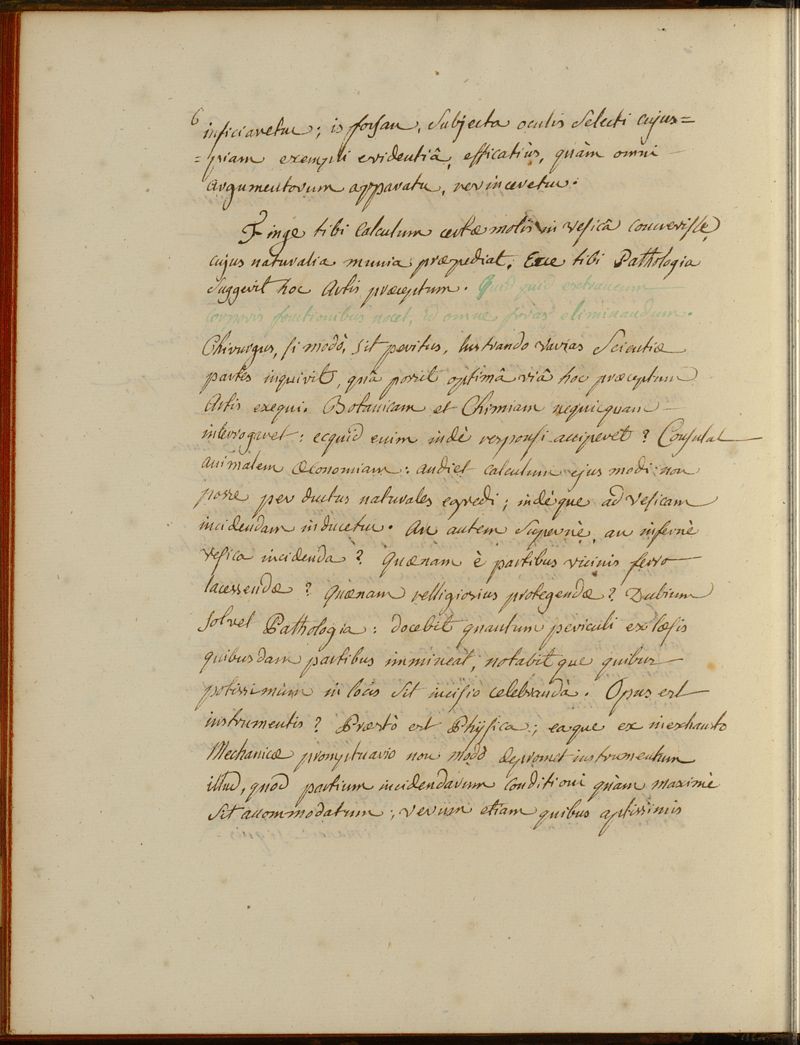 6
inficiaretur; is forsan, subjecta oculis selecti cujus=
=piam exempli evidentiâ, efficatiùs, quàm omni
argumentorum apparatu, revinceretur.
Finge tibi calculum certæ molis in vesicâ concrevisse,
cujus naturalia munia præpediat. Ecce tibi Pathologia
suggerit hoc Artis præceptum. Quid quid extraneum
corporis functionibus nocet, id omne foras eliminandum.
Chirurgus, si modò, sit peritus, lustrando varias Scientiæ
partes inquirit, quâ possit optimâ viâ hoc præceptum
Artis exequi. Botanicam et Chimiam nequicquam
interrogaret: ecquid enim indè responsi acciperet? Consulat
animalem Œconomiam: audiet calculum ejus modi non
posse per ductus naturales egredi; indèque ad vesicam
incidendam inducetur. An autem supernè, an infernè
vesica incidenda? Quænam è partibus vicinis ferro
lacessendæ? Quænam relligiosius protegendæ? Dubium
solvet Pathologia: docebit quantum periculi ex læsis
quibusdam partibus immineat, notabitque quibus
potissimùm in locis sit incisio celebranda. Opus est
instrumentis? Præstò est Physica; eaque ex inexhausto
Mechanicæ promptuario non modò depromet instrumentum
illud, quod partium incidendarum conditioni quàm maximè
sit accommodatum; verum etiam quibus aptissimis